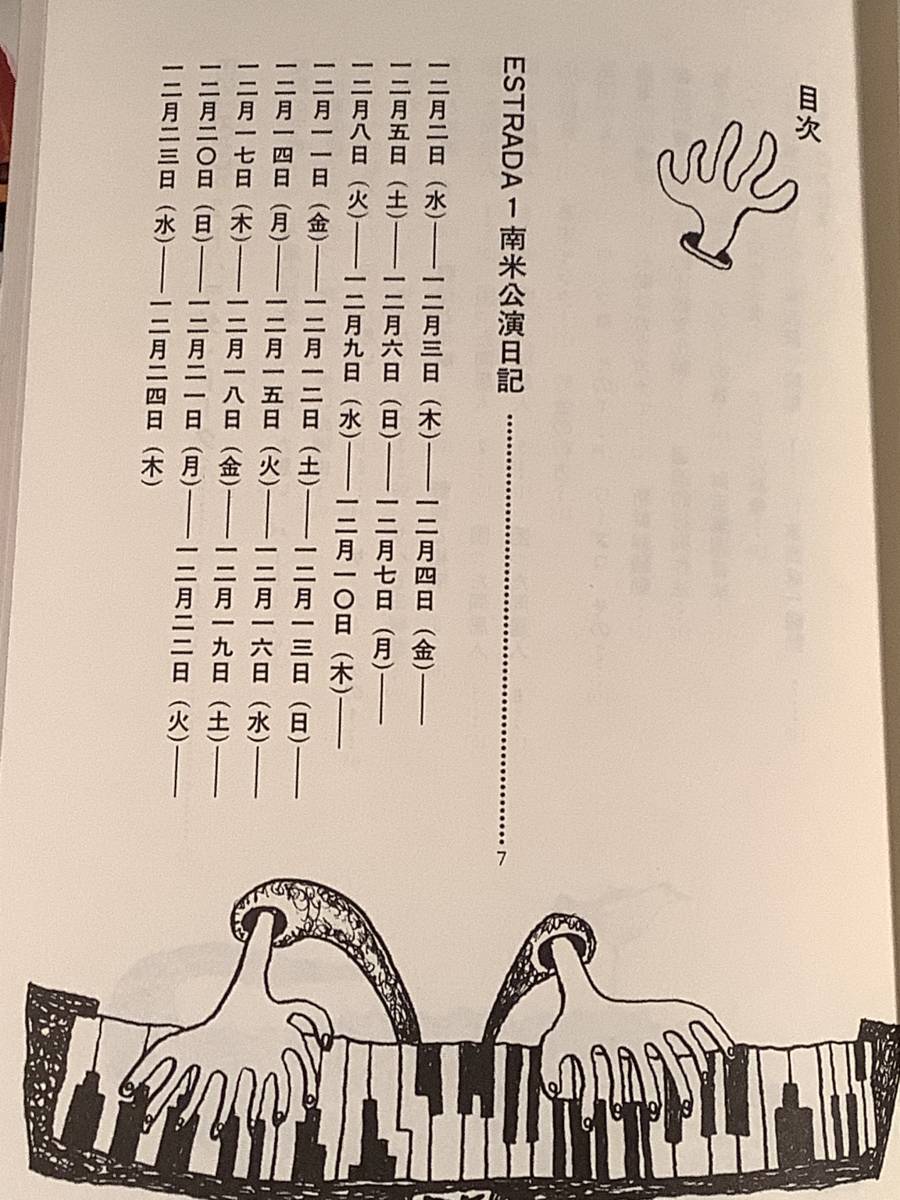 目次
ESTRADA 1 南米公演日記 …………………… 7
一二月二日（水）――一二月三日（木）――一二月四日（金）――
一二月五日（土）――一二月六日（日）――一二月七日（月）――
一二月八日（火）――一二月九日（水）――一二月一〇日（木）――
一二月一一日（金）――一二月一二日（土）――一二月一三日（日）――
一二月一四日（月）――一二月一五日（火）――一二月一六日（水）――
一二月一七日（木）――一二月一八日（金）――一二月一九日（土）――
一二月二〇日（日）――一二月二一日（月）――一二月二二日（火）――
一二月二三日（水）――一二月二四日（木）